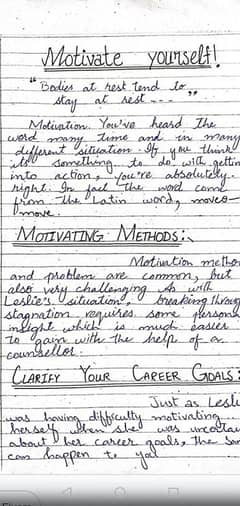 Motivate yourself!
"Bodies at rest tend to
stay at rest --- "
Motivation. You've heard the
word many time and in many
different situation. If you think
its something to do with gettin
into action, you're absolutely
right. In fact the word come
from the Latin word, moveo-
move.
MOTIVATING METHODS:
Motivation metho
and problem are common, but
also very challenging As with
Leslie's situation, breaking throug
stagnation requires some persona
insight which is much easier
to gain with the help of a
counsellor.
CLARIFY YOUR CAREER GOALS:
Just as Lesli
was having difficulty motivating
herself when she was uncertai
about her career goals, The sam
can happen to you